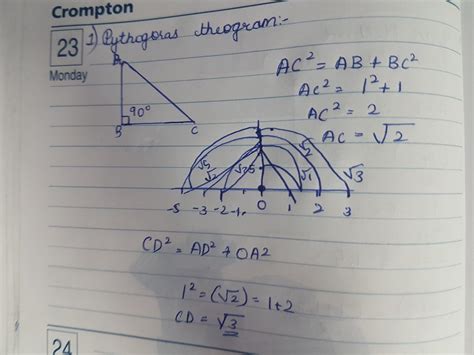 Crompton
23
Monday
1) Pythagoras theogram:-
A
90°
B C
AC² = AB + BC²
AC² = 1² + 1
AC² = 2
AC = √2
√5 √2 √2 √1 √3
-5 -3 -2 -1 0 1 2 3
CD² = AD² + OA2
1² = (√2) = 1+2
CD = √3
24